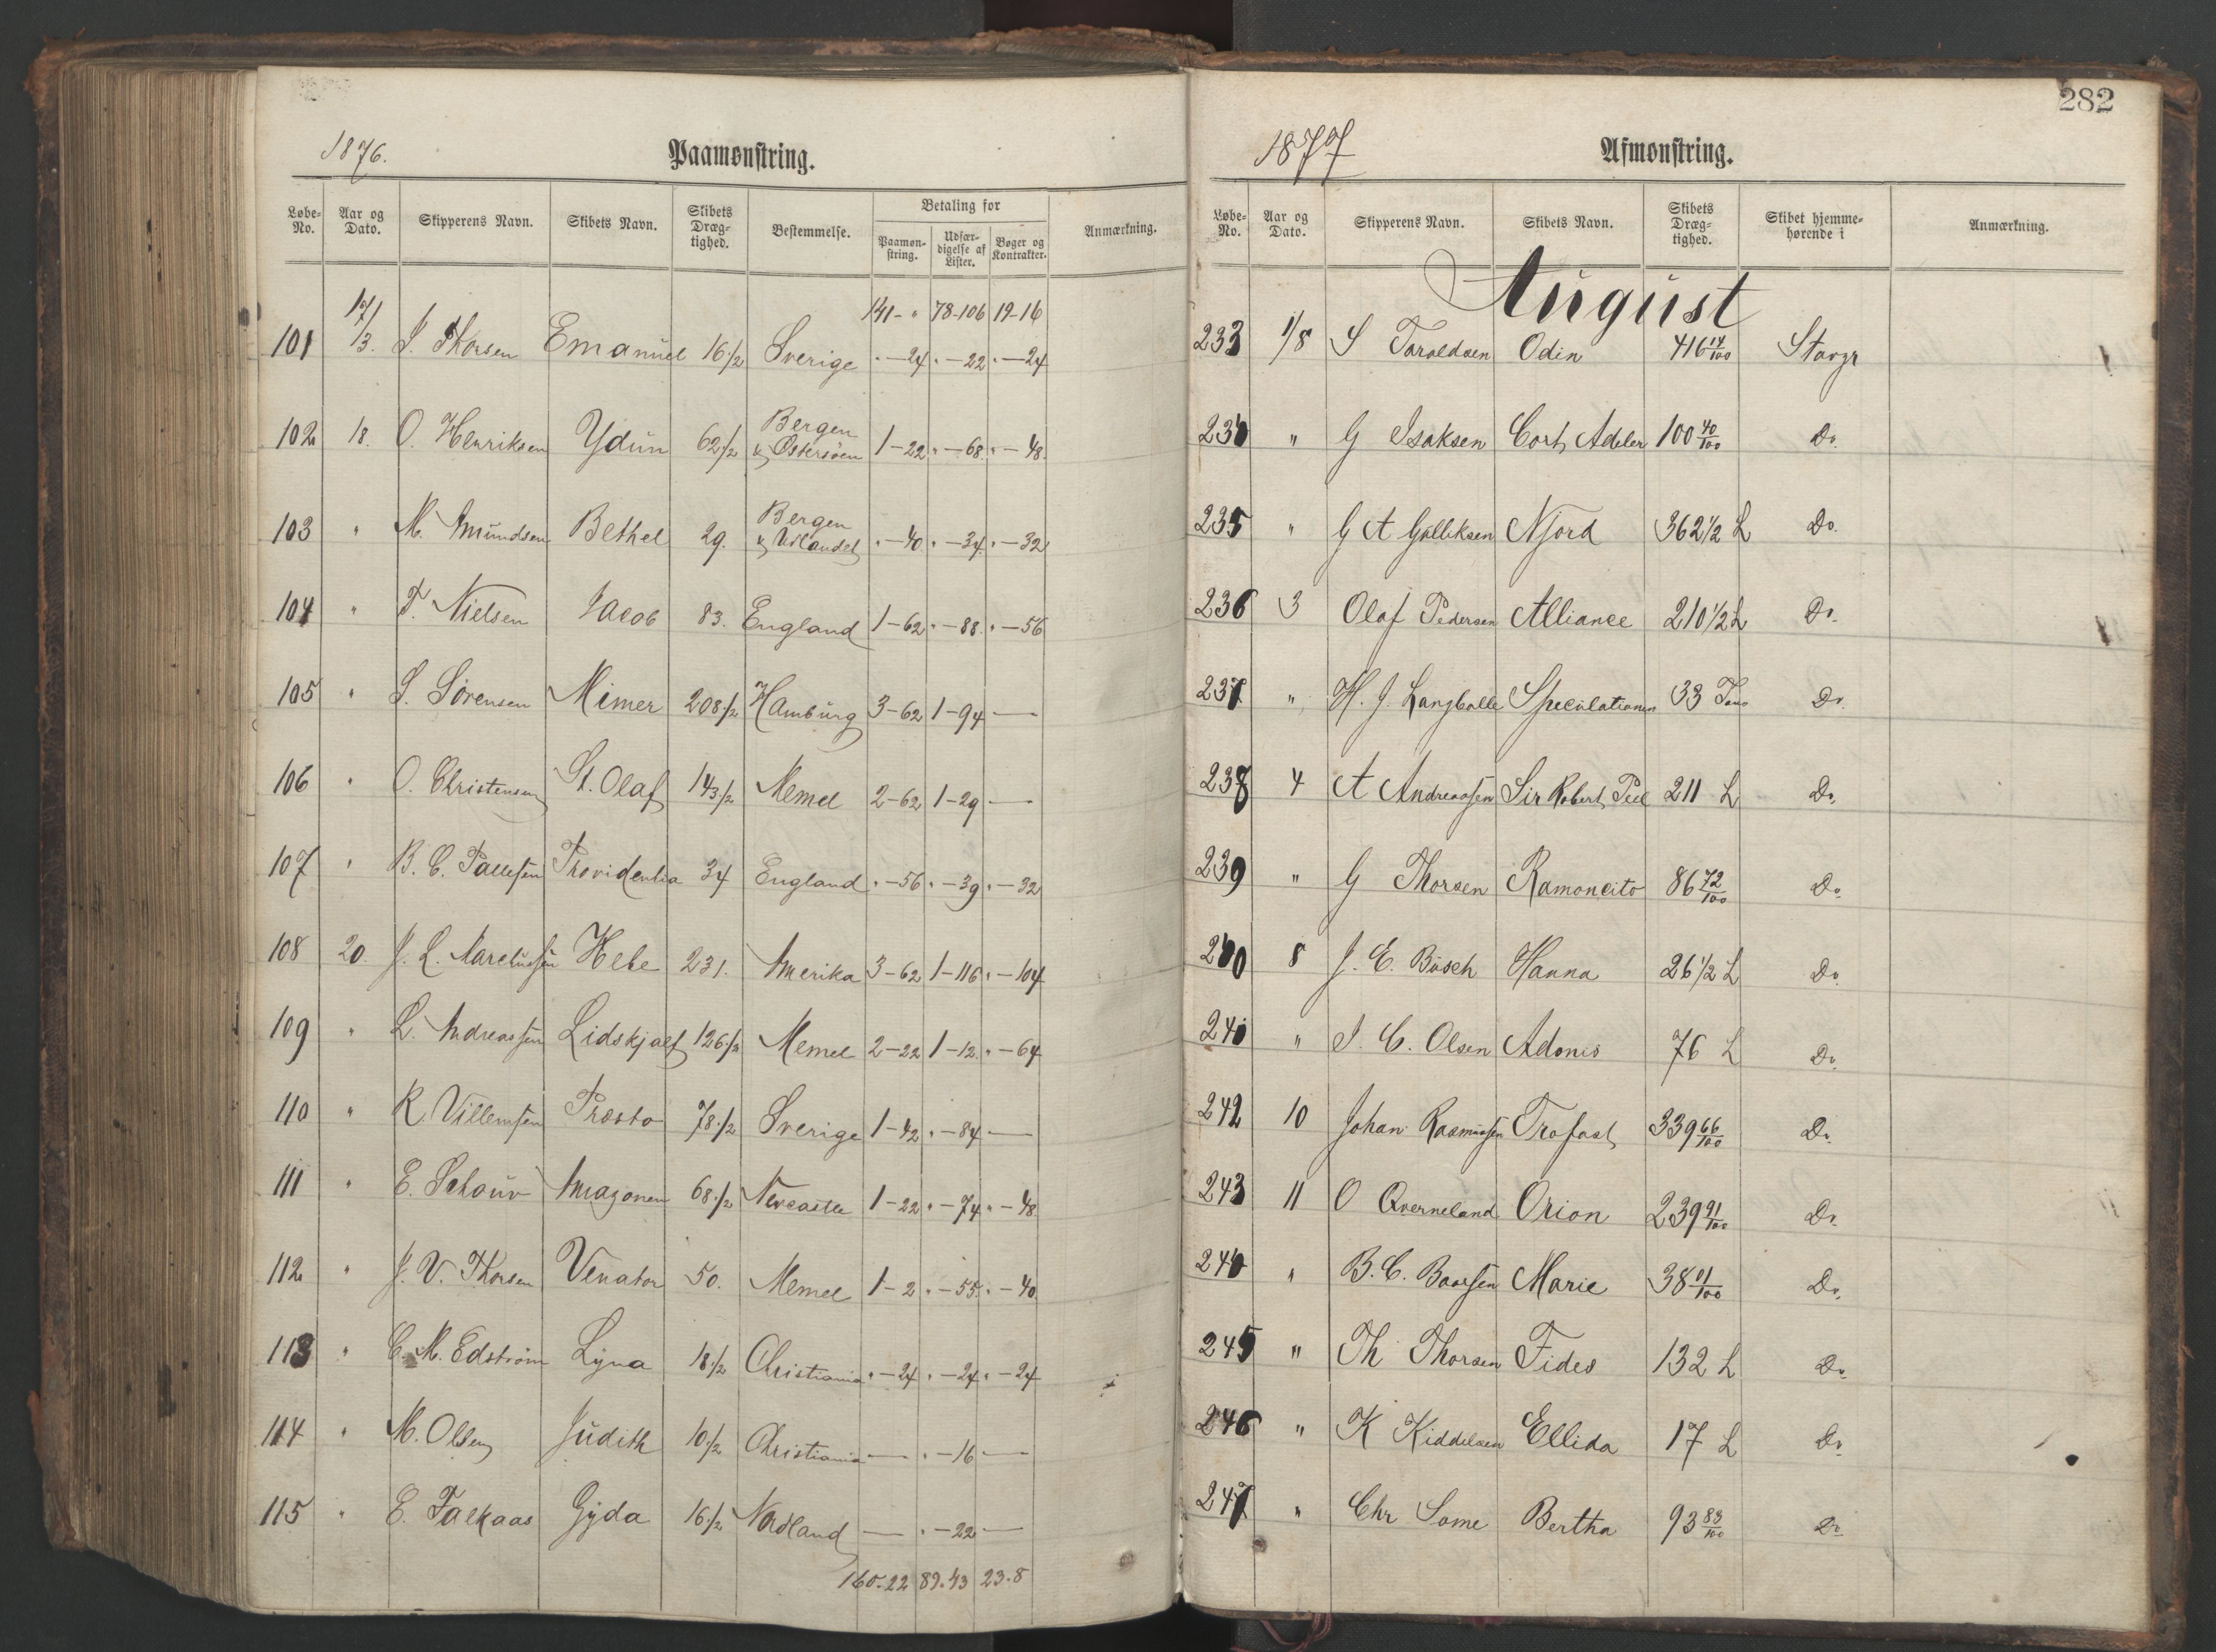 1876.
Paamønstring.
Løbe-No. Aar og Dato. Skipperens Navn. Skibets Navn. Skibets Dræg-tighed. Bestemmelse. Betaling for Anmærkning.
Paamøn-string. Udfær-digelse af Lister. Bøger og Kontrakter.
141 - " 78-106 19-16
101 17/3. J. Thorsen Emanuel 16 1/2 Sverige " - 24 " - 22 " - 24
102 18. O. Henriksen Ydun 62 1/2 Bergen & Østersøen 1 - 22 " - 68. " - 48.
103 " M. Amundsen Bethel 29. Bergen & Udlandet " - 40. " - 34. " - 32
104 " T. Nielsen Jacob 83. England 1 - 62 " - 88. " - 56
105 " S. Sörensen Mimer 208 1/2 Hamburg 3 - 62 1 - 94 —
106 " O. Christensen St. Olaf 143 1/2 Memel 2 - 62 1 - 29 —
107 " B. C. Pallesen Providentia 34 England " - 56 " - 39 " - 32
108 20. J. L. Marcussen Hebe 231. Amerika 3 - 62 1 - 116 " - 104
109 " L. Andreassen Lidskjalf 126 1/2 Memel 2 - 22 1 - 12. " - 64
110 " R. Villemsen Præsto 78 1/2 Sverige 1 - 42 " - 84 —
111 " E. Schouv Amazonen 68 1/2 Newcastle 1 - 22 " - 74 " - 48
112 " J. V. Thorsen Venator 50. Memel 1 - 2 " - 55. " - 40
113 " C. M. Edström Lyna 18 1/2 Christiania " - 24 " - 24 " - 24
114 " M. Olsen Judith 10 1/2 Christiania — " - 16 —
115 " E. Falkaas Gyda 16 1/2 Nordland — " - 22 —
160-22 89-43 23-8
282
1877
Afmønstring.
Løbe-No. Aar og Dato. Skipperens Navn. Skibets Navn. Skibets Dræg-tighed. Skibet hjemme-hørende i Anmærkning.
August
233 1/8 S Taraldsen Odin 416 14/100 Stavgr
234 " G Isaksen Cort Adeler 100 40/100 Do.
235 " G A Gulliksen Njord 362 1/2 L Do.
236 3 Olaf Pedersen Alliance 210 1/2 L Do.
237 " H. J. Langballe Speculationen 33 Tons Do.
238 4 A Andreassen Sir Robert Peel 211 L Do.
239 " G Thorsen Ramoncito 86 72/100 Do.
240 8 J. E. Büsch Hanna 26 1/2 L Do.
241 " I. C. Olsen Adonis 76 L Do.
242 10 Johan Rasmussen Trofast 339 66/100 Do.
243 11 O Qverneland Orion 239 91/100 Do.
244 " B. C. Baarsen Marie 38 01/100 Do.
245 " Th Thorsen Fides 132 L Do.
246 " K Kiddelsen Ellida 17 L Do.
247 " Chr Some Bertha 93 83/100 Do.